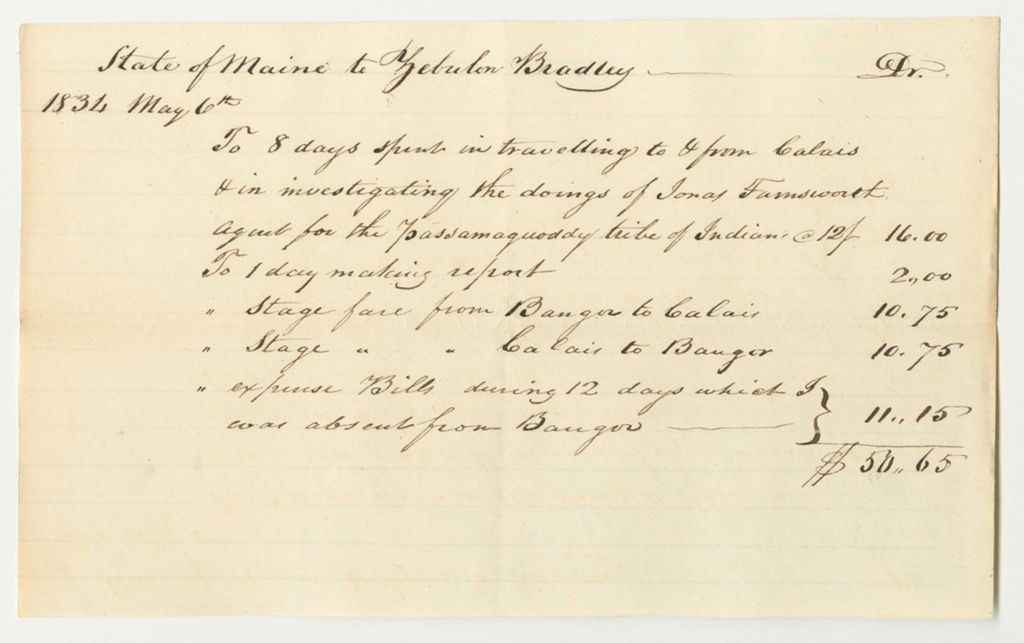 State of Maine to Zebulon Bradley — Dr.
1834 May 6th
To 8 days spent in travelling to & from Calais
& in investigating the doings of Jonas Farnsworth
agent for the Passamaquoddy tribe of Indians @ 12/ 16.00
To 1 day making report 2,,00
" Stage fare from Bangor to Calais 10.75
" Stage " " Calais to Bangor 10.75
" expense Bills during 12 days which I
was absent from Bangor — } 11,,15
$ 50,,65